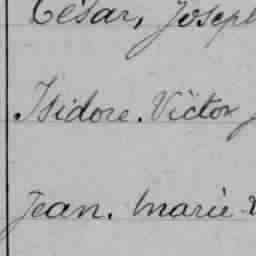 César, Joseph
Isidore. Victor
Jean. Marie